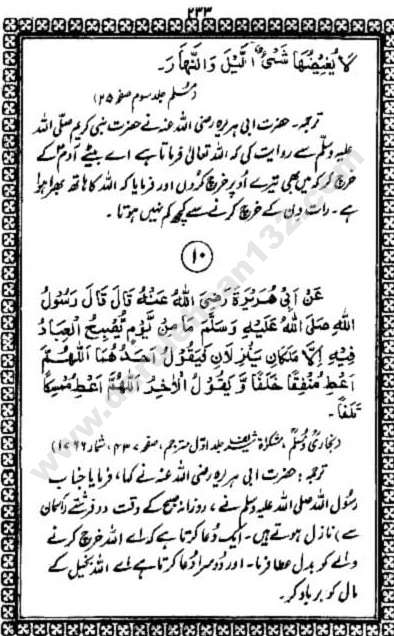 ۲۳۳
لَا يُغِيْضُهَا شَيْئٌ الَّيْلَ وَالنَّهَارَ۔
(مُسلم جلد سوم صفحہ ۲۵)
ترجمہ۔ حضرت ابی ہریرہ رضی اللہ عنہ نے حضرت نبی کریم صلی اللہ
علیہ وسلّم سے روایت کی کہ اللہ تعالیٰ فرماتا ہے اے بیٹے آدمؑ کے
خرچ کر کہ میں بھی تیرے اُوپر خرچ کروں اور فرمایا کہ اللہ کا ہاتھ بھرا ہوا
ہے۔ رات دن کے خرچ کرنے سے کچھ کم نہیں ہوتا۔
۱۰
عَنْ اَبِیْ هُرَيْرَةَ رَضِیَ اللّٰهُ عَنْهُ قَالَ قَالَ رَسُوْلُ
اللهِ صَلَّی اللّٰهُ عَلَيْهِ وَسَلَّمَ مَا مِنْ يَّوْمٍ يُّصْبِحُ الْعِبَادُ
فِيْهِ اِلَّا مَلَكَانِ يَنْزِلَانِ فَيَقُوْلُ اَحَدُهُمَا اَللّٰهُمَّ
اَعْطِ مُنْفِقًا خَلَفًا وَّ يَقُوْلُ الْاٰخِرُ اَللّٰهُمَّ اَعْطِ مُمْسِكًا
تَلَفًا۔
(بخاریؒ و مُسلمؒ، مشکوٰۃ شریف جلد اوّل مترجم، صفحہ ۴۳۷، شمار ۱۷۶۶)
ترجمہ: حضرت ابی ہریرہ رضی اللہ عنہ نے کہا، فرمایا جناب
رسُول اللہ صلی اللہ علیہ وسلم نے، روزانہ صبح کے وقت دو فرشتے (آسمان
سے) نازل ہوتے ہیں۔ ایک دُعا کرتا ہے کہ اے اللہ خرچ کرنے
والے کو بدل عطا فرما۔ اور دُوسرا دُعا کرتا ہے اے اللہ بخیل کے
مال کو برباد کر۔